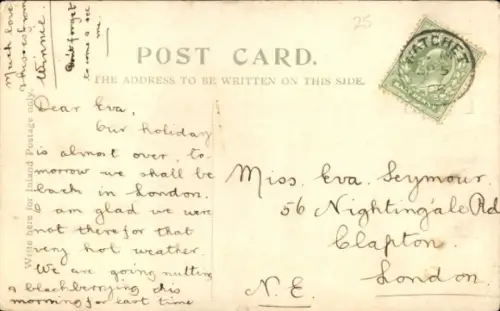 POST CARD.
THE ADDRESS TO BE WRITTEN ON THIS SIDE.
Write here for Inland Postage only.
25
DATCHET
Dear Eva,
Our holiday
is almost over, to-
morrow we shall be
back in London.
I am glad we were
not there for that
very hot weather.
We are going nutting
& blackberrying this
morning for last time
Much love
& kisses from
Winnie
Don't forget
to come & see
me.
Miss. Eva. Seymour.
56 Nightingale Rd
Clapton.
London.
N. E.